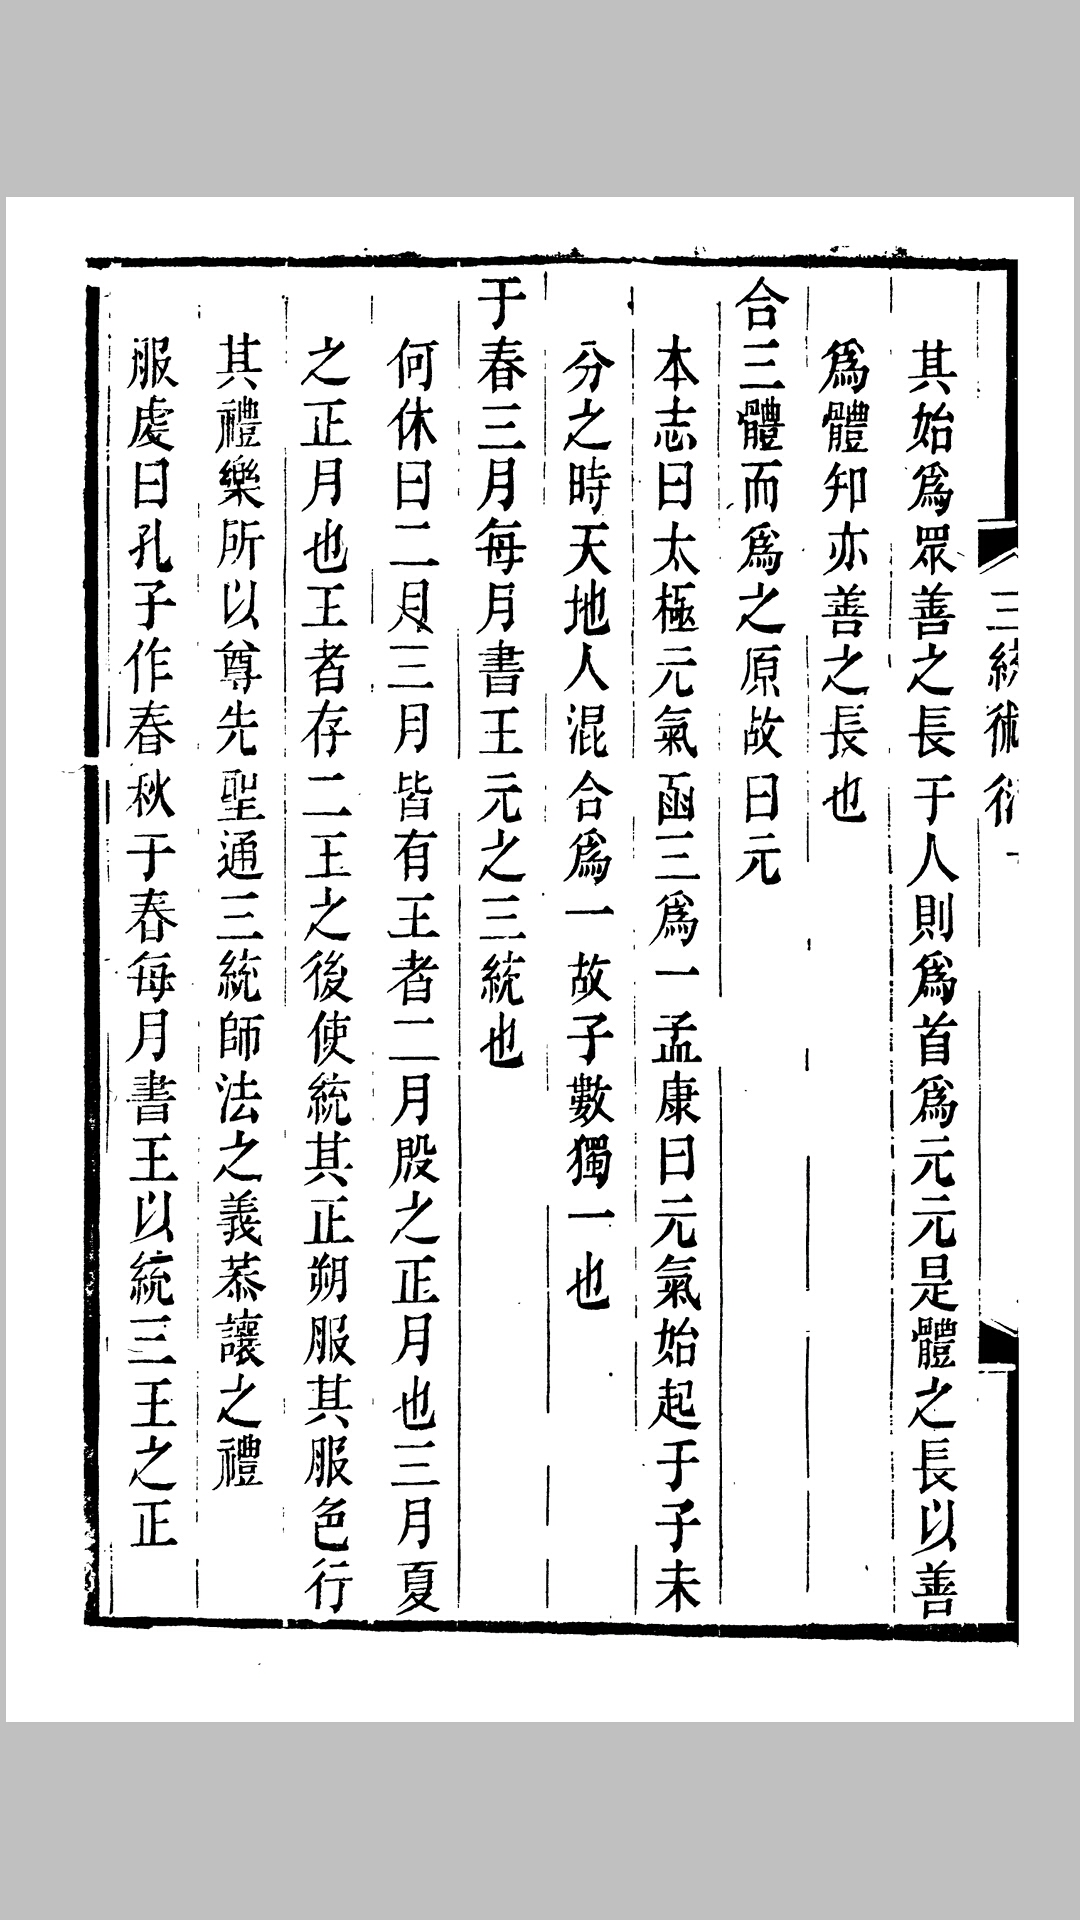 三統術衍
其始爲眾善之長于人則爲首爲元元是體之長以善
爲體知亦善之長也
合三體而爲之原故曰元
本志曰太極元氣函三爲一孟康曰元氣始起于子未
分之時天地人混合爲一故子數獨一也
于春三月每月書王元之三統也
何休曰二月三月皆有王者二月殷之正月也三月夏
之正月也王者存二王之後使統其正朔服其服色行
其禮樂所以尊先聖通三統師法之義恭讓之禮
服虔曰孔子作春秋于春每月書王以統三王之正